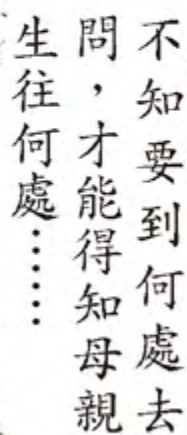 不知要到何處去
問，才能得知母親
生往何處……